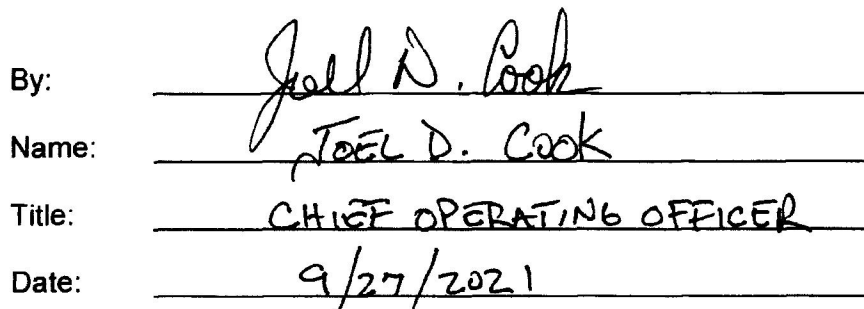 By: Joel D. Cook
Name: JOEL D. COOK
Title: CHIEF OPERATING OFFICER
Date: 9/27/2021